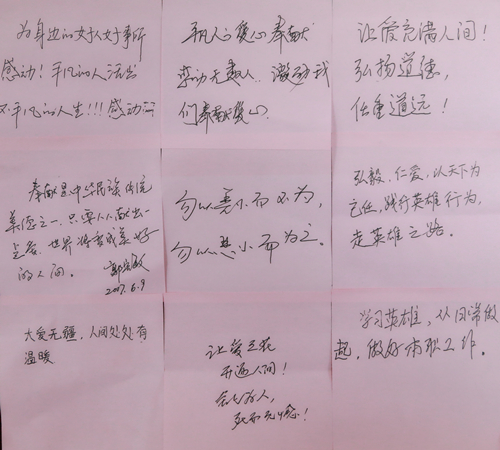 为身边的好人好事所
感动！平凡的人活出
不平凡的人生！！！感动
平凡人的爱心奉献
感动无数人、激励我
们奉献爱心
让爱充满人间！
弘扬道德，
任重道远！
奉献是中华民族传统
美德之一、只要人人献出一
点爱、世界将变成美好
的人间。
2017.6.9
勿以善小而不为，
勿以恶小而为之。
弘毅、仁爱，以天下为
己任，践行英雄行为，
走英雄之路。
大爱无疆，人间处处有
温暖
让爱之花
开遍人间！
为人，
死而无憾！
学习英雄，从日常做
起，做好本职工作。